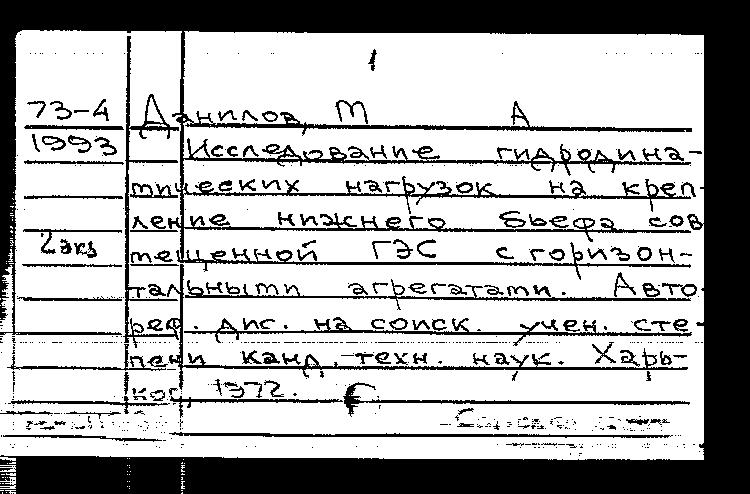 1
73-4 Данилов, М А
1993 Исследование гидродина-
мических нагрузок на креп-
ление нижнего бьефа сов
2 экз мещенной ГЭС с горизон-
тальными агрегатами. Авто-
реф. дис. на соиск. учен. сте-
пени канд. техн. наук. Харь-
ков, 1972.